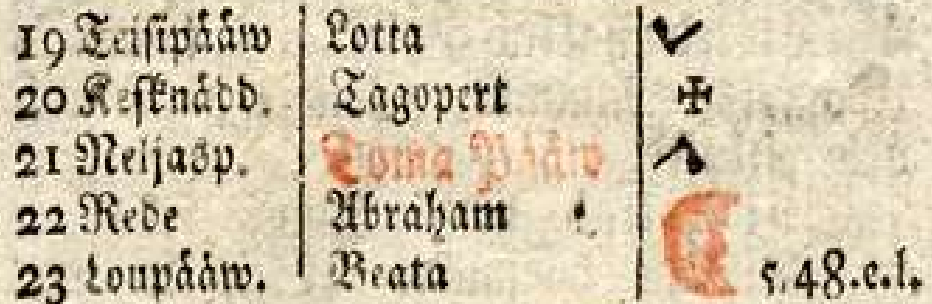 19 Teisipääw Lotta
20 Kesknädd. Tagopert
21 Neljasp. Toma Pääw
22 Rede Abraham
23 Loupääw. Beata 5.48.e.l.